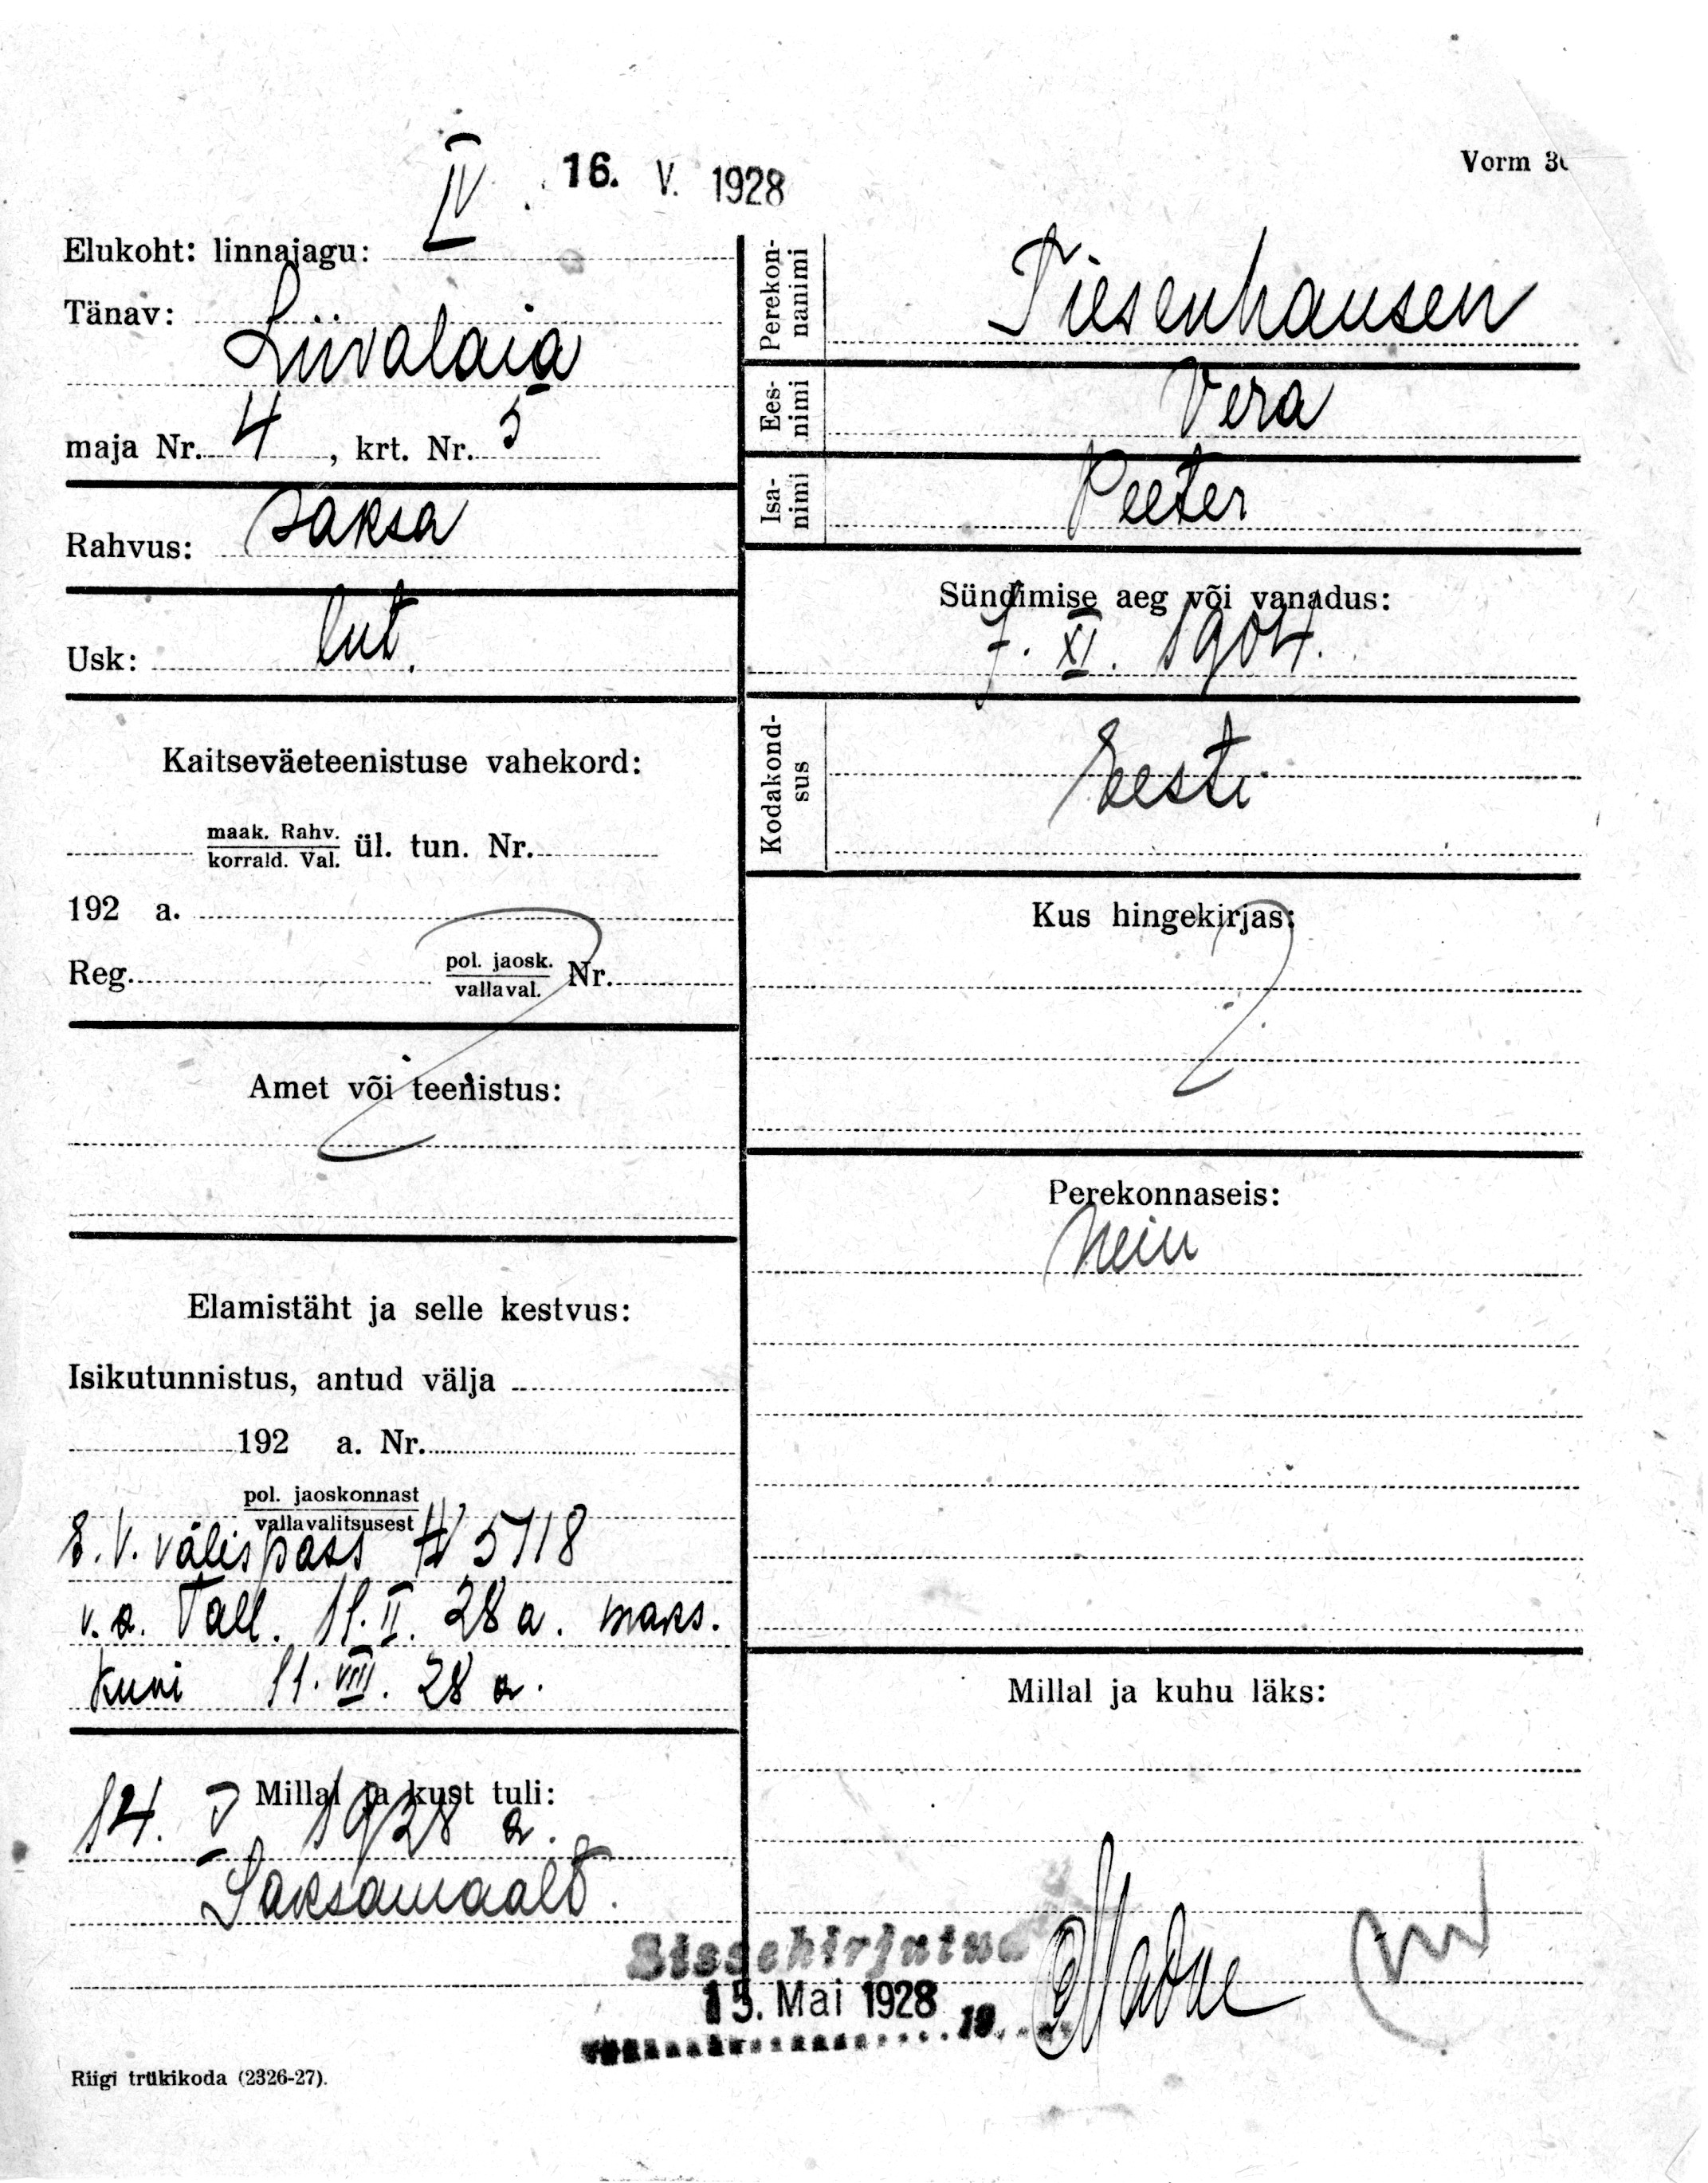 IV 16. V. 1928
Vorm 30
Elukoht: linnajagu:
Tänav:
Liivalaia
maja Nr. 4, krt. Nr. 5
Rahvus: saksa
Usk: lut.
Kaitseväeteenistuse vahekord:
maak. Rahv.
korrald. Val. ül. tun. Nr.
192 a.
Reg. pol. jaosk.
vallaval. Nr.
Amet või teenistus:
Elamistäht ja selle kestvus:
Isikutunnistus, antud välja
192 a. Nr.
pol. jaoskonnast
vallavalitsusest
E.V. välispass № 5718
v.a. Tall. 11. II. 28 a. maks.
kuni 11. VIII. 28 a.
Millal ja kust tuli:
14. V 1928 a.
Saksamaalt.
Perekon-
nanimi
Tiesenhausen
Ees-
nimi
Vera
Isa-
nimi
Peeter
Sündimise aeg või vanadus:
7. XI. 1904.
Kodakond-
sus
Eesti
Kus hingekirjas:
Perekonnaseis:
Neiu
Millal ja kuhu läks:
Sissekirjutud
15. Mai 1928 19
Riigi trükikoda (2326-27).